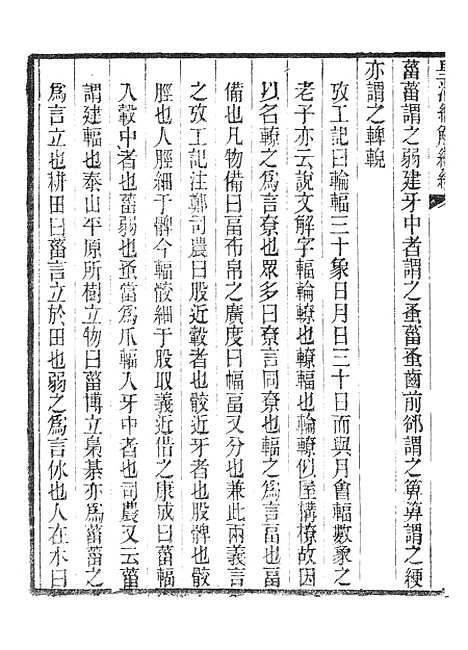 皇清經解續編
菑菑謂之弱建牙中者謂之蚤菑蚤齒前郤謂之箅箅謂之綆
亦謂之䡟輗
攷工記曰輪輻三十象日月日三十日而與月會輻數象之
老子亦云說文解字輻輪轑也轑輻也輪轑似屋構橑故因
以名轑之爲言尞也眾多曰尞言同尞也輻之爲言畐也畐
備也凡物備曰畐布帛之廣度曰幅畐又分也兼此兩義言
之攷工記注鄭司農曰股近轂者也骹近牙者也股髀也骹
脛也人脛細于髀今輻骹細于股取義近偕之康成曰菑輻
入轂中者也菑弱也蚤當爲爪輻入牙中者也司農又云菑
謂建輻也泰山平原所樹立物曰菑博立梟棊亦爲菑菑之
爲言立也耕田曰菑言立於田也弱之爲言㲻也人在水曰